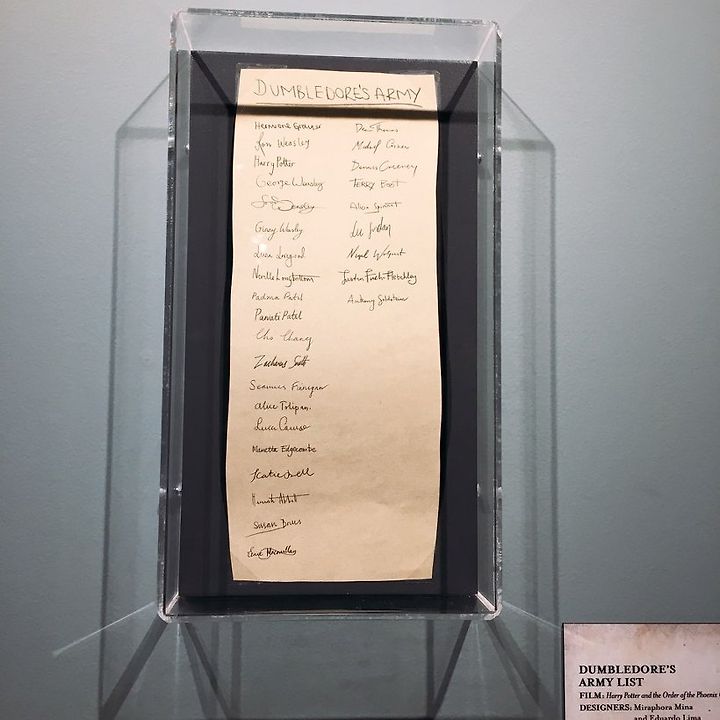 DUMBLEDORE'S ARMY
Hermione Granger
Ron Weasley
Harry Potter
George Weasley
Fred Weasley
Ginny Weasley
Luna Lovegood
Neville Longbottom
Padma Patil
Parvati Patil
Cho Chang
Zacharias Smith
Seamus Finnigan
Alice Tolipan.
Luca Caruso
Marietta Edgecombe
Katie Bell
Hannah Abbott
Susan Bones
Ernie Macmillan
Dean Thomas
Michael Corner
Dennis Creevey
TERRY BOOT
Alicia Spinnet
Lee Jordan
Nigel Wolpert
Justin Finch-Fletchley
Anthony Goldstein
DUMBLEDORE'S
ARMY LIST
FILM: Harry Potter and the Order of the Phoenix
DESIGNERS: Miraphora Mina
and Eduardo Lima